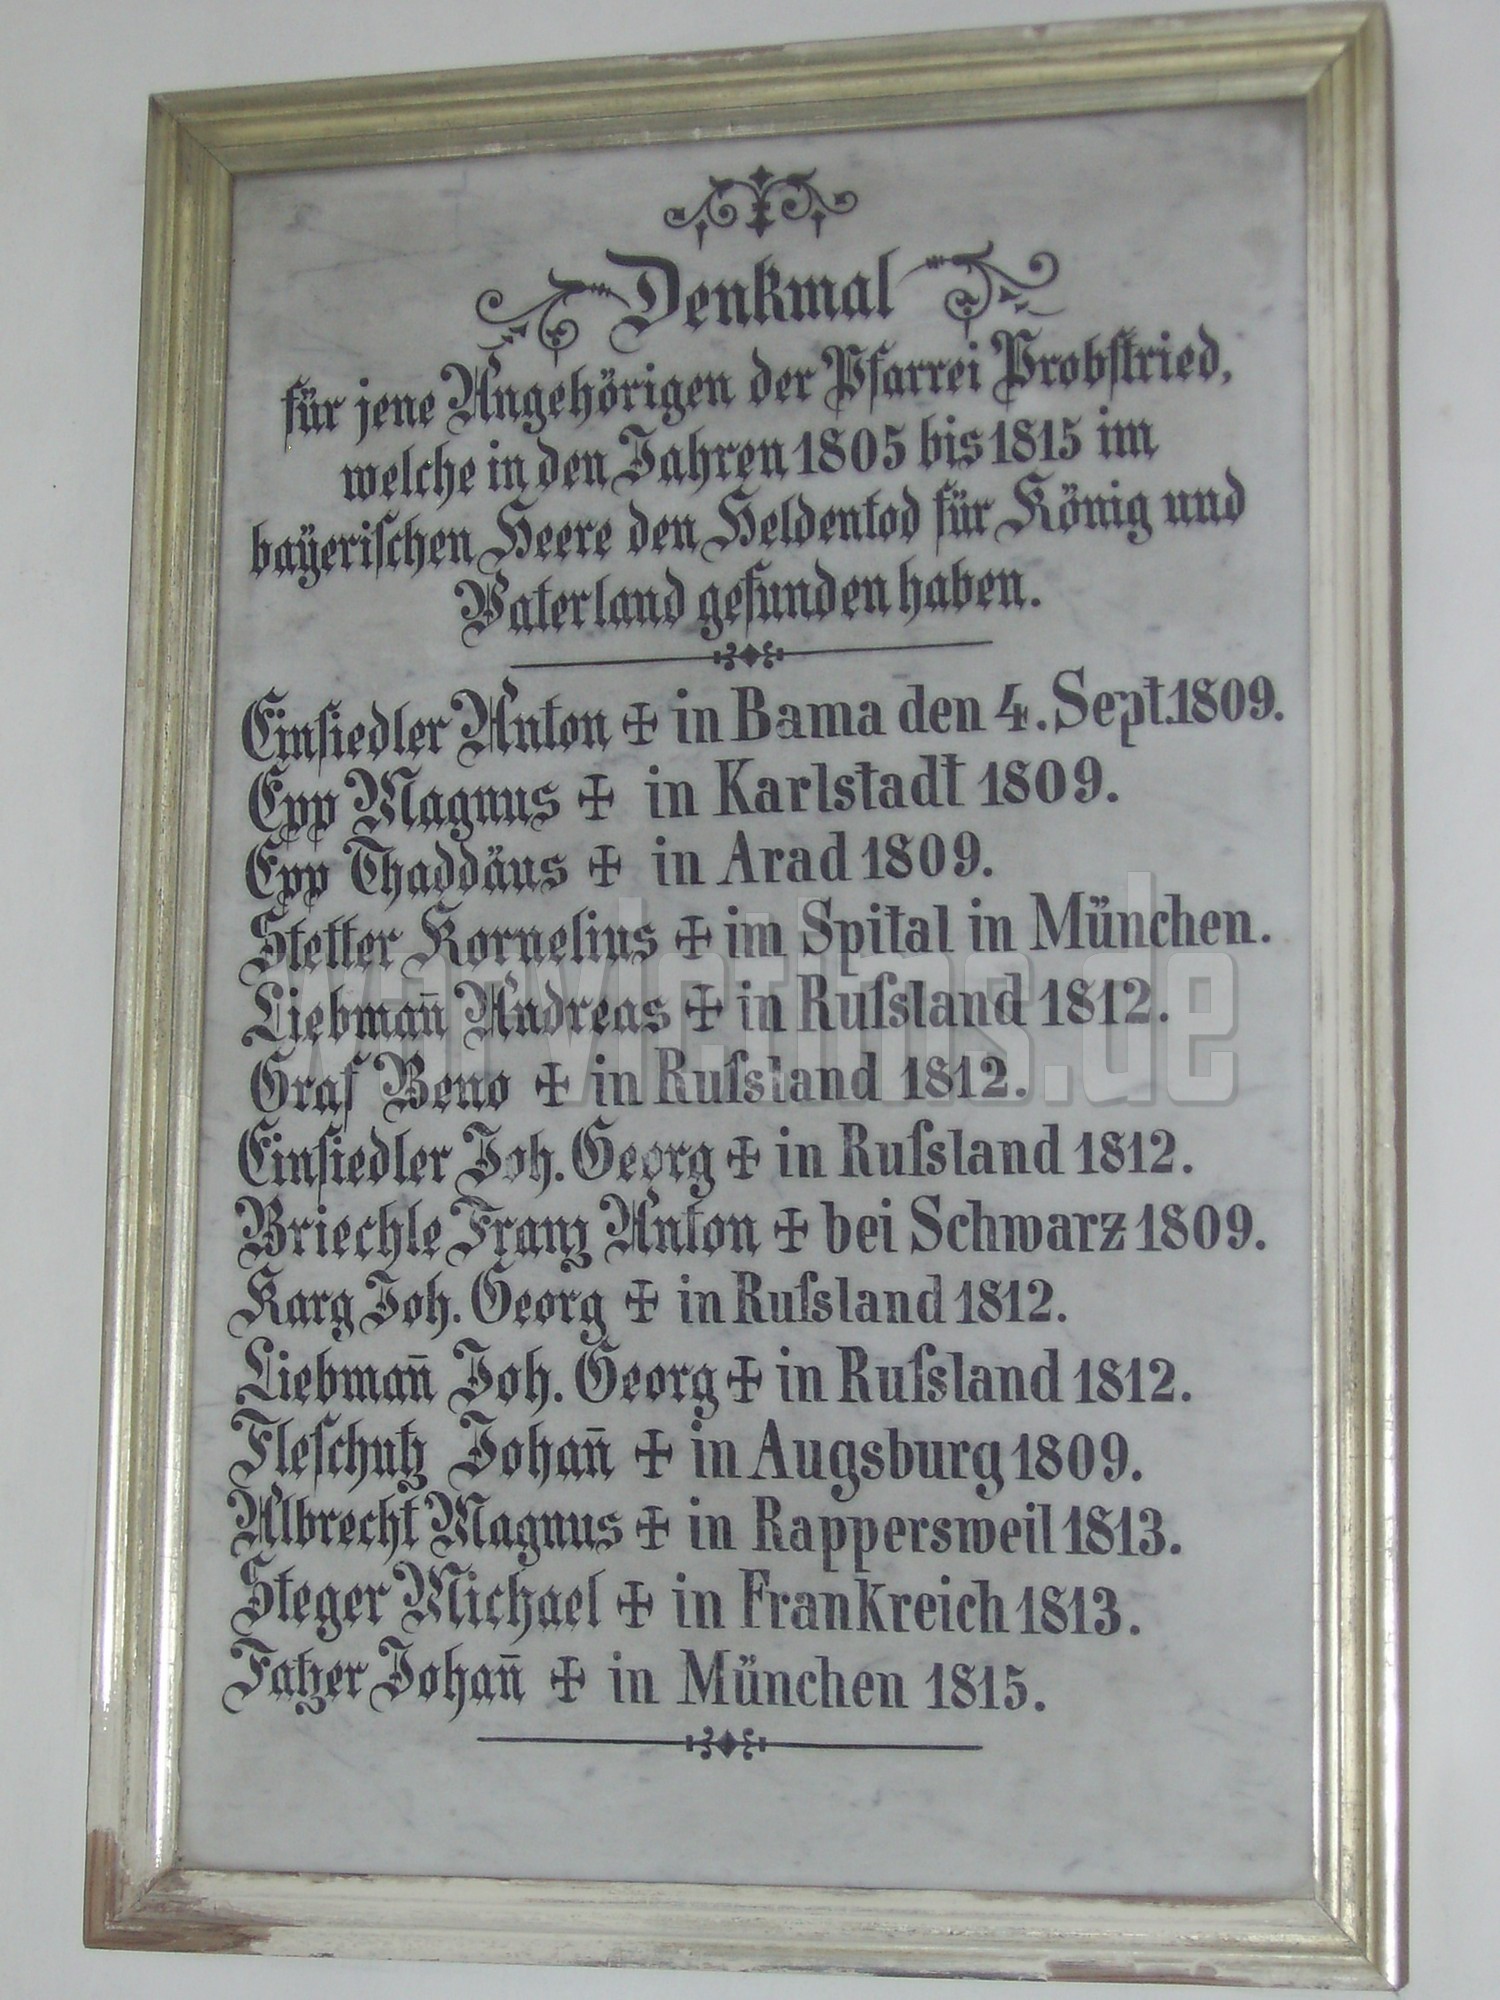 Denkmal
für jene Angehörigen der Pfarrei Probstried,
welche in den Jahren 1805 bis 1815 im
baÿeriſchen Heere den Heldentod für König und
Vaterland gefunden haben.
Einſiedler Anton ✠ in Bama den 4. Sept. 1809.
Epp Magnus ✠ in Karlstadt 1809.
Epp Thaddäus ✠ in Arad 1809.
Stetter Kornelius ✠ im Spital in München.
Liebman̄ Andreas ✠ in Ruſsland 1812.
Graf Beno ✠ in Ruſsland 1812.
Einſiedler Joh. Georg ✠ in Ruſsland 1812.
Briechle Franz Anton ✠ bei Schwarz 1809.
Karg Joh. Georg ✠ in Ruſsland 1812.
Liebman̄ Joh. Georg ✠ in Ruſsland 1812.
Fleſchutz Johan̄ ✠ in Augsburg 1809.
Albrecht Magnus ✠ in Rappersweil 1813.
Steger Michael ✠ in Frankreich 1813.
Fatzer Johan̄ ✠ in München 1815.